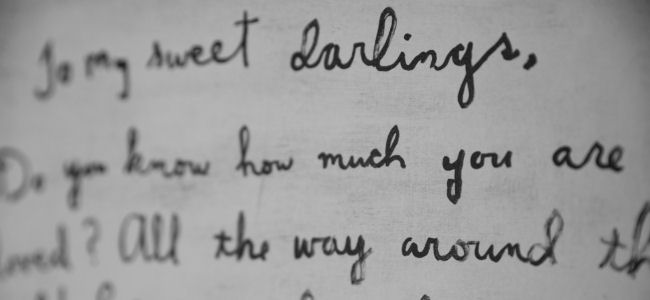 To my sweet darlings,
Do you know how much you are
loved? All the way around th